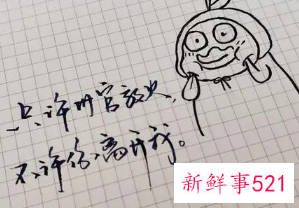 只许州官放火，
不许你离开我。
新鲜事521